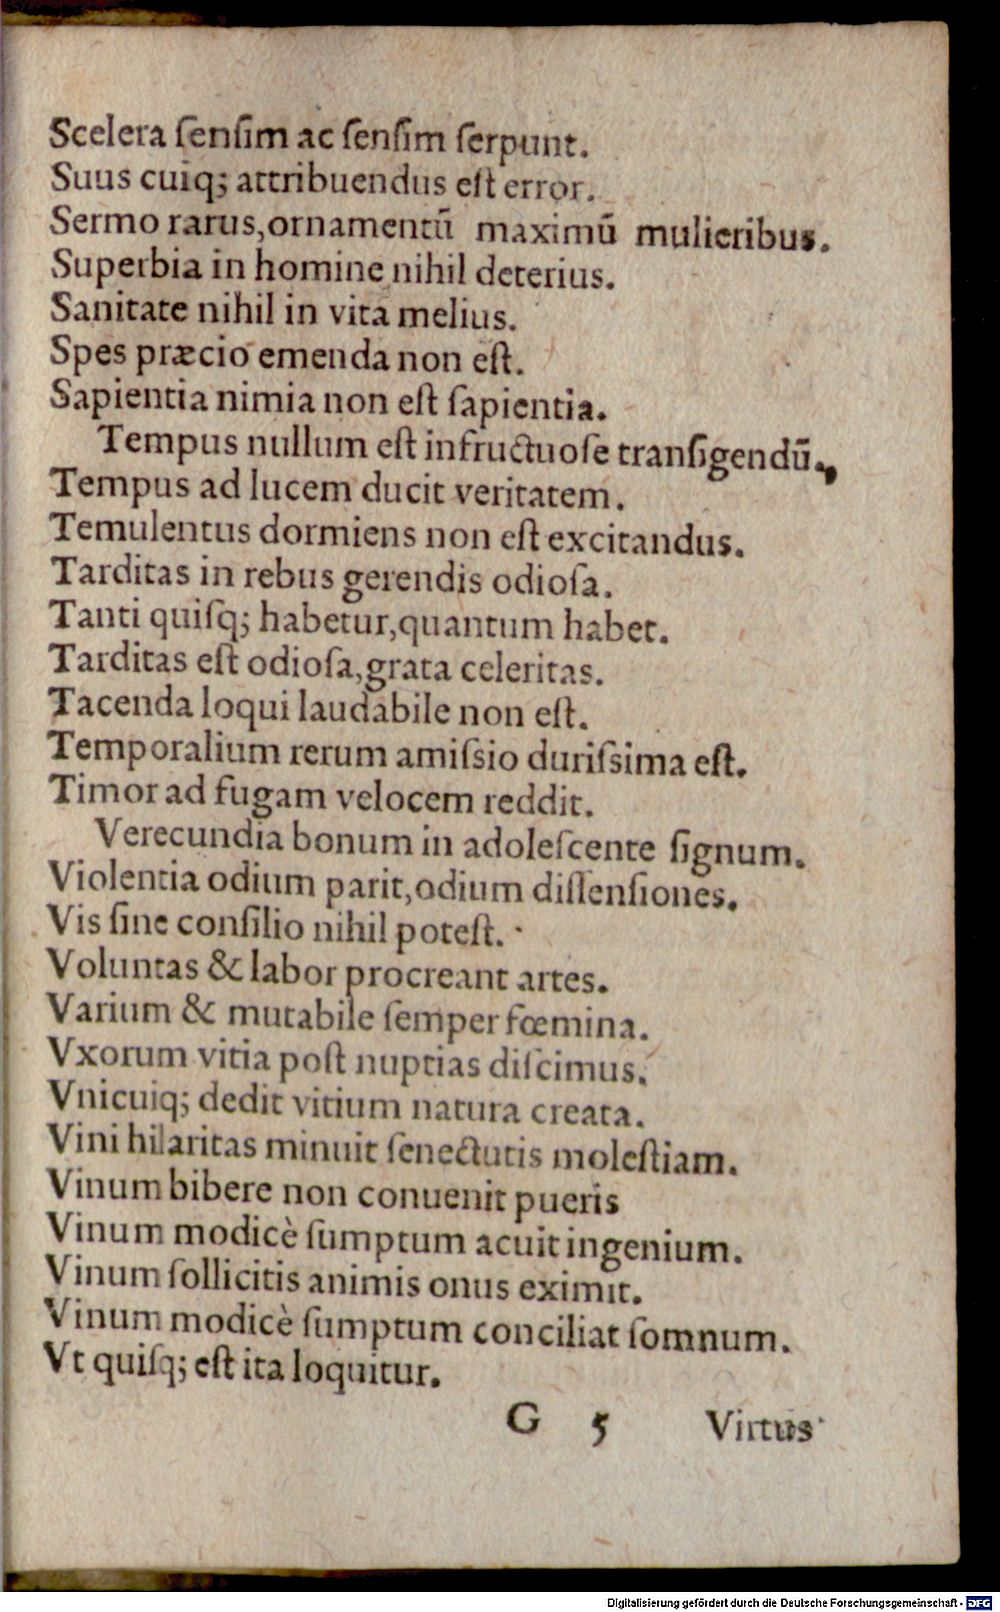 Scelera ſenſim ac ſenſim ſerpunt.
Suus cuiq; attribuendus eſt error.
Sermo rarus,ornamentū maximū mulieribus.
Superbia in homine nihil deterius.
Sanitate nihil in vita melius.
Spes præcio emenda non eſt.
Sapientia nimia non eſt ſapientia.
Tempus nullum eſt infructuoſe tranſigendū.
Tempus ad lucem ducit veritatem.
Temulentus dormiens non eſt excitandus.
Tarditas in rebus gerendis odioſa.
Tanti quiſq; habetur,quantum habet.
Tarditas eſt odioſa,grata celeritas.
Tacenda loqui laudabile non eſt.
Temporalium rerum amiſsio duriſsima eſt.
Timor ad fugam velocem reddit.
Verecundia bonum in adoleſcente ſignum.
Violentia odium parit,odium diſſenſiones.
Vis ſine conſilio nihil poteſt.
Voluntas & labor procreant artes.
Varium & mutabile ſemper fœmina.
Vxorum vitia poſt nuptias diſcimus.
Vnicuiq; dedit vitium natura creata.
Vini hilaritas minuit ſenectutis moleſtiam.
Vinum bibere non conuenit pueris
Vinum modicè ſumptum acuit ingenium.
Vinum ſollicitis animis onus eximit.
Vinum modicè ſumptum conciliat ſomnum.
Vt quiſq; eſt ita loquitur.
G 5 Virtus
Digitalisierung gefördert durch die Deutsche Forschungsgemeinschaft - DFG